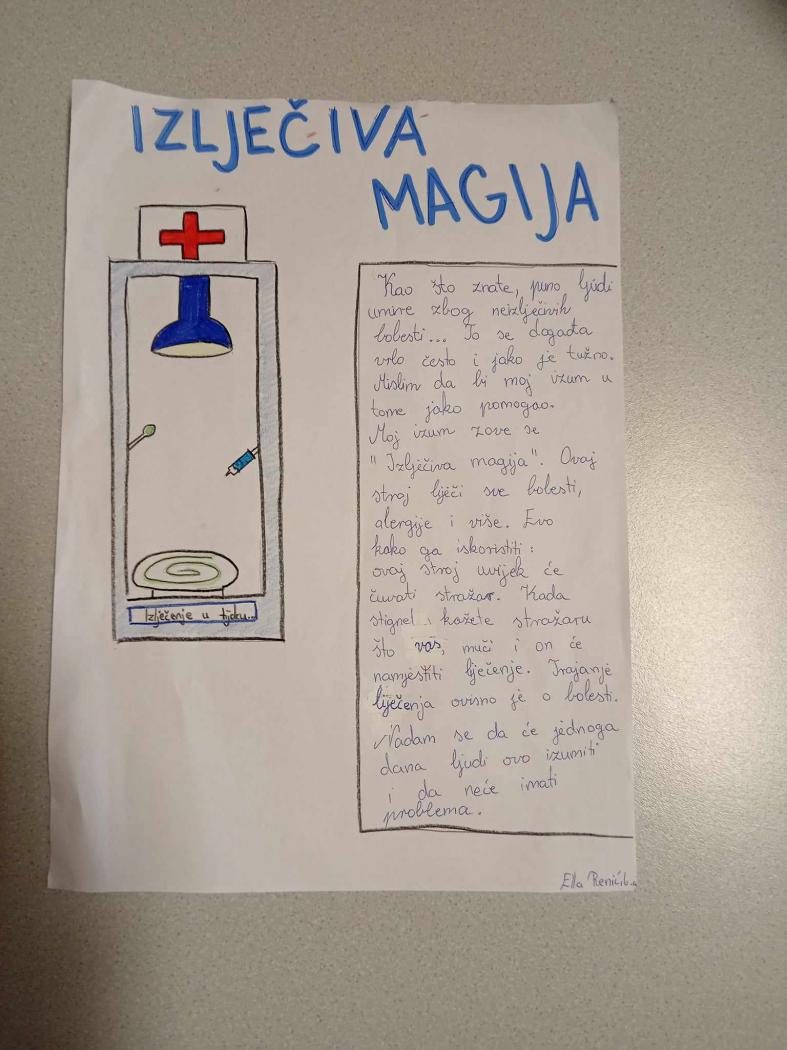 IZLJEČIVA
MAGIJA
Kao što znate, puno ljudi
umire zbog neizlječivih
bolesti... To se događa
vrlo često i jako je tužno.
Mislim da bi moj izum u
tome jako pomogao.
Moj izum zove se
"Izlječiva magija". Ovaj
stroj lječi sve bolesti,
alergije i više. Evo
kako ga iskoristiti:
ovaj stroj uvijek će
čuvati stražar. Kada
kažete stražaru
što vas, muči i on će
namjestiti lječenje. Trajanje
liječenja ovisno je o bolesti.
Nadam se da će jednoga
dana ljudi ovo izumiti
i da neće imati
problema.
Izlječenje u tijeku...
Ella